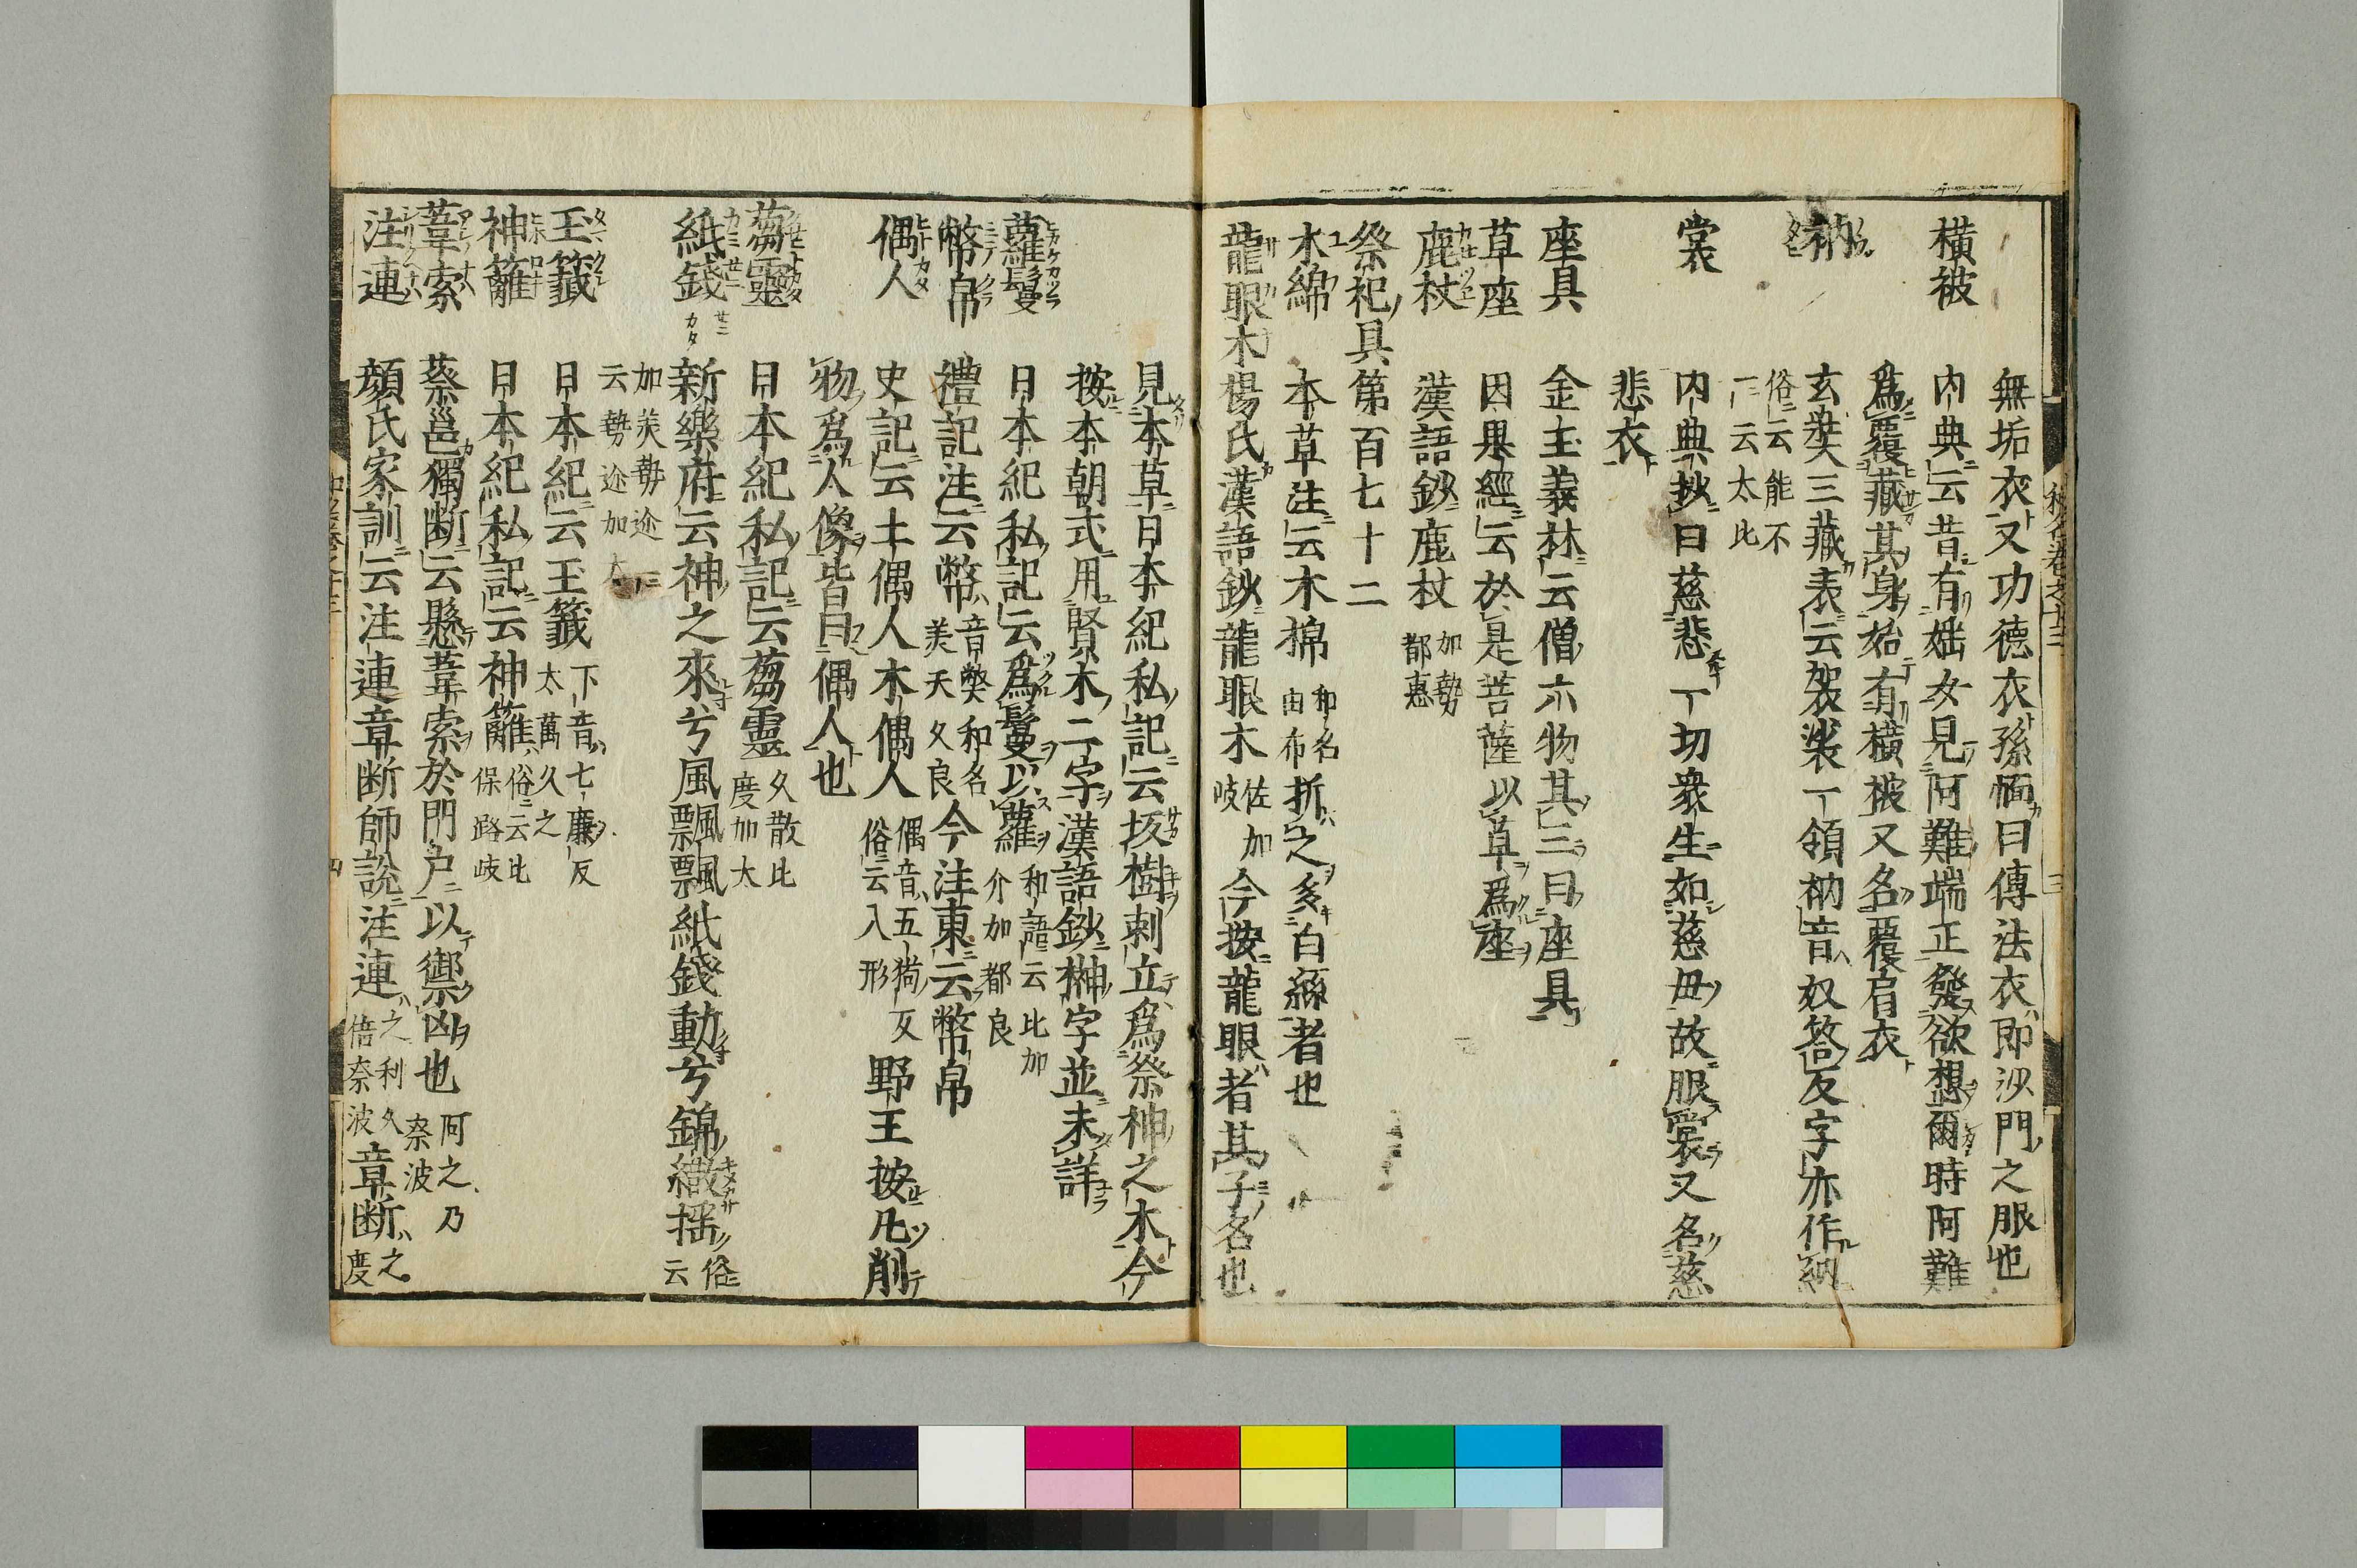 無垢衣又功德衣孫愐曰傳法衣即沙門之服也
橫被 内典云昔有婬女見阿難端正發欲想爾時阿難
爲覆藏其身始有橫被又名覆肩衣
衲 玄奘三藏表云袈裟一領衲音奴荅反字亦作納
俗云能不
一云太比
裳 内典抄曰慈悲一切衆生如慈母故服裳又名慈
悲衣
座具 金玉義林云僧六物其三曰座具
草座 因果經云於是菩薩以草爲座
鹿杖 漢語鈔鹿杖 加勢都惠
祭祀具第百七十二
木綿 本草注云木綿 和名由布 折之多白絲者也
龍眼木 楊氏漢語鈔龍眼木 佐加岐 今按龍眼者其子名也
見本草日本紀私記云坂樹刺立爲祭神之木今
按本朝式用賢木二字漢語鈔榊字並未詳
蘿鬘 日本紀私記云爲鬘以蘿 和語云比加介加都良
幣帛 禮記注云幣 音弊和名美天久良 今注東云幣帛
偶人 史記云土偶人木偶人 偶音五狗反俗云入形 野王按凡削
物爲人像皆曰偶人也
蒭靈 日本紀私記云蒭靈 久散比度加太
紙錢 新樂府云神之來兮風飄飄紙錢動兮錦繖搖 俗云
加美勢迩
云勢迩加太
玉籤 日本紀云玉籤 下音七廉反太萬久之
神籬 日本紀私記云神籬 俗云比保路岐
葦索 蔡邕獨断云懸葦索於門戶以禦凶也 阿之乃奈波
注連 顔氏家訓云注連章断師說注連 之利久倍奈波 章断 之度